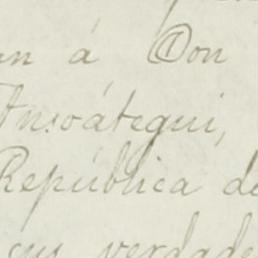 an á Don
Anzoátegui,
República de
sus verdade